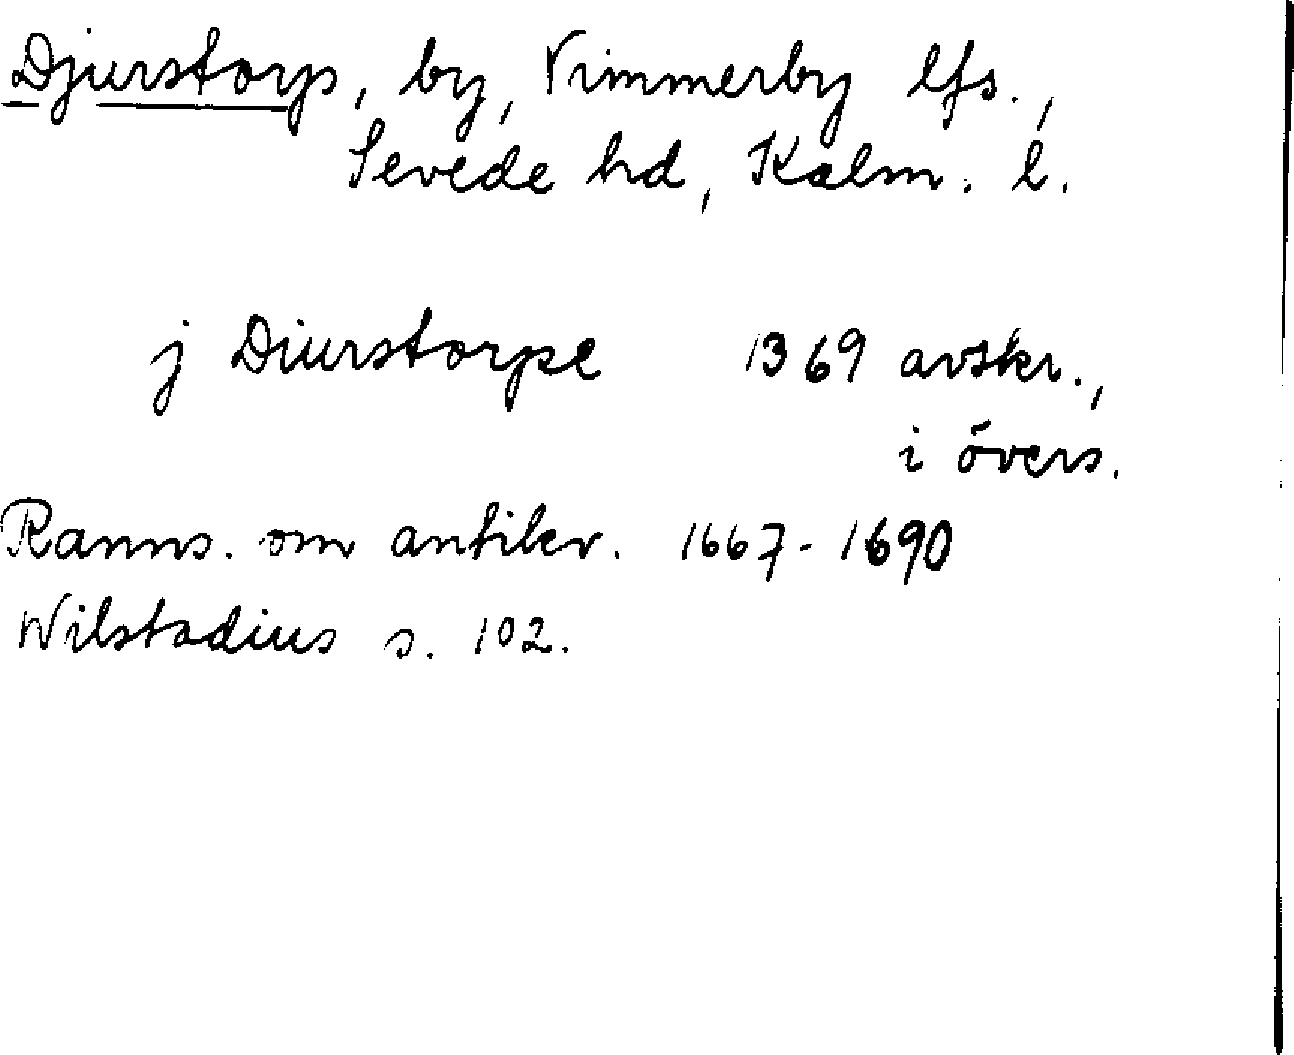 Djurstorp, by, Vimmerby lfs.,
Sevede hd, Kalm. l.
j Diurstorpe 1369 avskr.,
i övers.
Ranns. om antikv. 1667-1690
Wilstadius s. 102.